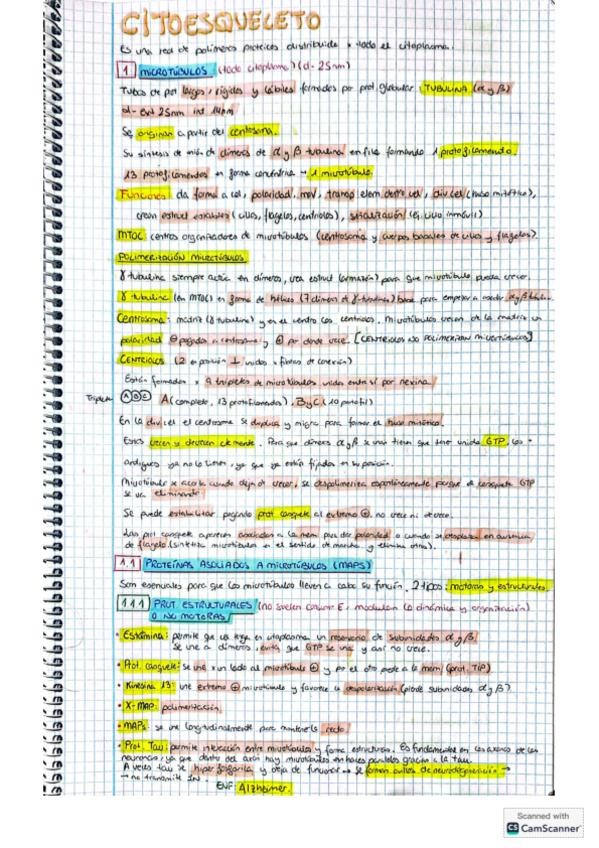 CITOESQUELETO
Es una red de polímeros proteicos distribuida x todo el citoplasma.
1 MICROTÚBULOS (todo citoplasma) (d - 25nm)
Tubos de pot largos, rígidos y lábiles formados por prot. globular: TUBULINA (α y β)
d - ext 25nm int 14nm
Se originan a partir del centrosoma.
Su síntesis de unión de dímeros de α y β tubulina en fila formando 1 protofilamento.
13 protofilamentos en forma concéntrica → 1 microtúbulo.
Funciones: da forma a cel, polaridad, mov, transp elem dentro cel, div cel (huso mitótico),
crean estruct estables (cilios, flagelos, centriolos), señalización (ej. cilio inmóvil)
MTOC: centros organizadores de microtúbulos (centrosoma y cuerpos basales de cilios y flagelos).
POLIMERIZACIÓN MICROTÚBULOS
γ tubulina siempre actúa en dímeros, crea estruct (armazón) para que microtúbulo pueda crecer.
γ tubulina (en MTOC) en forma de hélice (7 dímeros de γ-tubulina) base para empezar a α y β
Centrosoma: matriz (γ tubulina) y en el centro los centriolos. Microtúbulos crecen de la matriz con
polaridad ⊖ pegados a centrosoma y ⊕ por donde crece. [CENTRIOLOS NO POLIMERIZAN MICROTÚBULOS]
CENTRIOLOS (2 en posición ⊥ unidos x fibras de conexión)
Están formados x 9 tripletes de microtúbulos unidos entre sí por nexina.
Triplete ABC A (completo, 13 protofilamentos), B y C (10 protofil)
En la div cel el centrosoma se duplica y migra para formar el huso mitótico.
Estos crecen y decrecen cte mente. Para que dímeros α y β se unan tienen que tener unido GTP, los +
antiguos ya no lo tienen, ya que ya están fijados en su posición.
Microtúbulo se acorta cuando deja de crecer, se despolimeriza espontáneamente porque el casquete GTP
se va eliminando
Se puede estabilizar pegando prot casquete al extremo ⊕, no crece ni decrece.
Las prot casquete aparecen asociadas a la mem para dar polaridad o cuando se desplazan en ausencia
de flagelo (sintetiza microtúbulos en el sentido de marcha y elimina otros).
1.1 PROTEÍNAS ASOCIADAS A MICROTÚBULOS (MAPS)
Son esenciales para que los microtúbulos lleven a cabo su función. 2 tipos: motoras y estructurales.
1.1.1 PROT. ESTRUCTURALES (no suelen consumir E. modulan la dinámica y organización)
O NO MOTORAS
• Estatmina: permite que se haga en citoplasma un reservorio de subunidades α y β
Se une a dímeros, evita que GTP se una y así no crece.
• Prot. casquete: se une x un lado al microtúbulo ⊕ y por el otro poste a la mem (prot. TIP)
• Kinesina 13: une extremo ⊕ microtúbulo y favorece la despolarización (pierde subunidades α y β)
• X-MAP: polimerización.
• MAPs: se une longitudinalmente para mantenerlo recto.
• Prot. Tau: permite interacción entre microtúbulos y forma estructuras. Es fundamental en los axones de las
neuronas, ya que dentro del axón hay microtúbulos en haces paralelos gracias a la tau.
A veces tau se hiper fosforila y deja de funcionar → se forman ovillos de neurodegeneración →
→ no transmite IN.
ENF: Alzheimer.
Scanned with
CS CamScanner